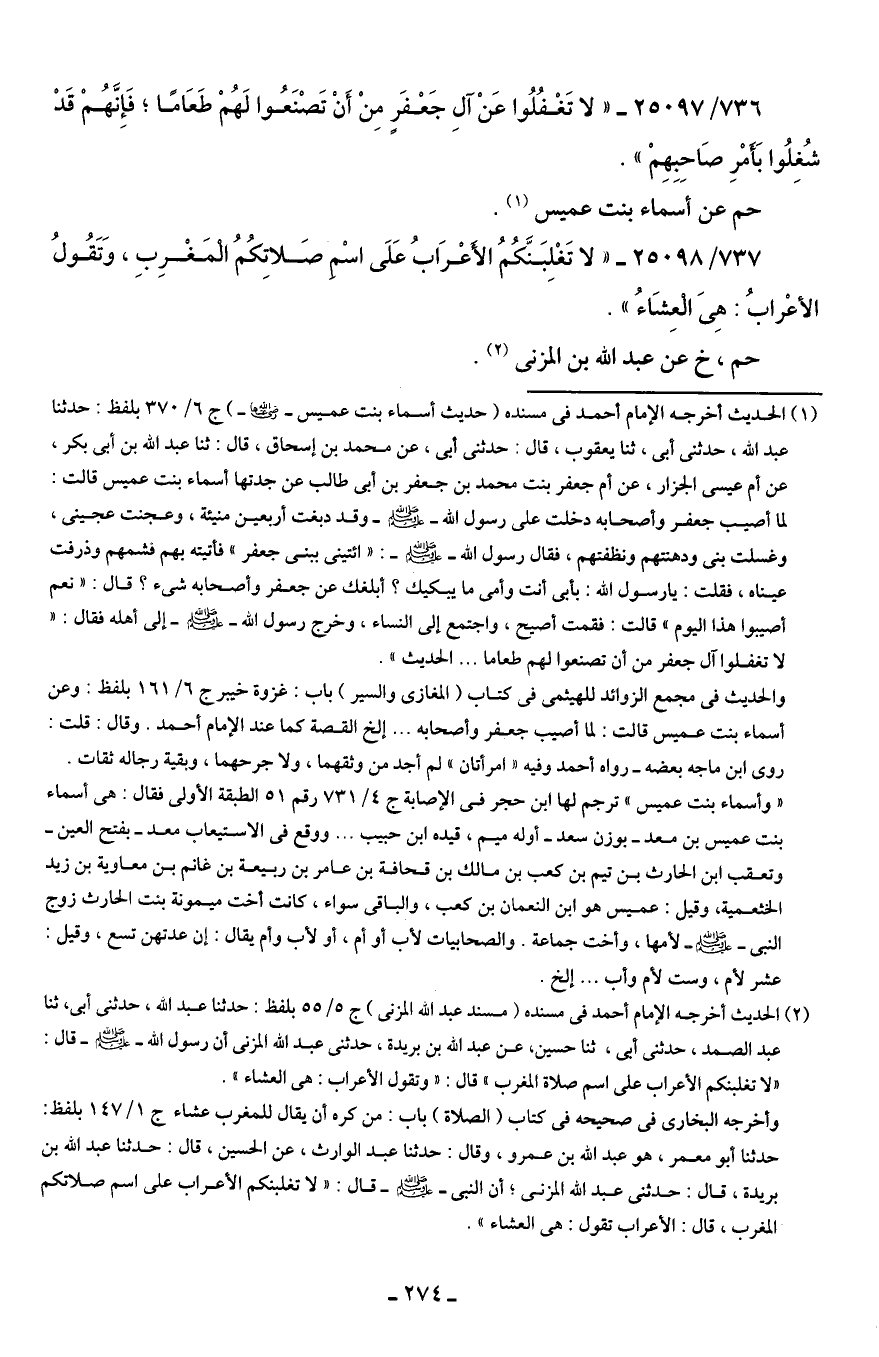 ٧٣٦/ ٢٥٠٩٧ ـ « لا تَغْفُلُوا عَنْ آلِ جَعْفَرٍ مِنْ أَنْ تَصْنَعُوا لَهُمْ طَعَامًا ؛ فَإِنَّهُمْ قَدْ
شُغِلُوا بَأَمْرِ صَاحِبِهِمْ » .
حم عن أسماء بنت عميس (١) .
٧٣٧/ ٢٥٠٩٨ ـ « لا تَغْلِبَنَّكُمُ الأَعْرَابُ عَلَى اسْمِ صَلاتِكُمُ الْمَغْرِبِ ، وَتَقُولُ
الأعْرابُ : هِىَ الْعِشَاءُ » .
حم ، خ عن عبد الله بن المزنى (٢) .
(١) الحديث أخرجه الإمام أحمد فى مسنده ( حديث أسماء بنت عميس ـ رضي الله عنها ـ ) ج ٦/ ٣٧٠ بلفظ : حدثنا
عبد الله ، حدثنى أبى ، ثنا يعقوب ، قال : حدثنى أبى ، عن محمد بن إسحاق ، قال : ثنا عبد الله بن أبى بكر ،
عن أم عيسى الجزار ، عن أم جعفر بنت محمد بن جعفر بن أبى طالب عن جدتها أسماء بنت عميس قالت :
لما أصيب جعفر وأصحابه دخلت على رسول الله ـ ﷺ ـ وقد دبغت أربعين منيئة ، وعجنت عجينى ،
وغسلت بنى ودهنتهم ونظفتهم ، فقال رسول الله ـ ﷺ ـ : « ائتينى ببنى جعفر » فأتيته بهم فشمهم وذرفت
عيناه ، فقلت : يارسول الله : بأبى أنت وأمى ما يبكيك ؟ أبلغك عن جعفر وأصحابه شىء ؟ قال : « نعم
أصيبوا هذا اليوم » قالت : فقمت أصيح ، واجتمع إلى النساء ، وخرج رسول الله ـ ﷺ ـ إلى أهله فقال : «
لا تغفلوا آل جعفر من أن تصنعوا لهم طعاما ... الحديث » .
والحديث فى مجمع الزوائد للهيثمى فى كتاب ( المغازى والسير ) باب : غزوة خيبر ج ٦/ ١٦١ بلفظ : وعن
أسماء بنت عميس قالت : لما أصيب جعفر وأصحابه ... إلخ القصة كما عند الإمام أحمد . وقال : قلت :
روى ابن ماجه بعضه ـ رواه أحمد وفيه « امرأتان » لم أجد من وثقهما ، ولا جرحهما ، وبقية رجاله ثقات .
« وأسماء بنت عميس » ترجم لها ابن حجر فى الإصابة ج ٤/ ٧٣١ رقم ٥١ الطبقة الأولى فقال : هى أسماء
بنت عميس بن معد ـ بوزن سعد ـ أوله ميم ، قيده ابن حبيب ... ووقع فى الاستيعاب معد ـ بفتح العين ـ
وتعقب ابن الحارث بن تيم بن كعب بن مالك بن قحافة بن عامر بن ربيعة بن غانم بن معاوية بن زيد
الخثعمية، وقيل : عميس هو ابن النعمان بن كعب ، والباقى سواء ، كانت أخت ميمونة بنت الحارث زوج
النبى ـ ﷺ ـ لأمها ، وأخت جماعة . والصحابيات لأب أو أم ، أو لأب وأم يقال : إن عدتهن تسع ، وقيل :
عشر لأم ، وست لأم وأب ... إلخ .
(٢) الحديث أخرجه الإمام أحمد فى مسنده ( مسند عبد الله المزنى ) ج ٥/ ٥٥ بلفظ : حدثنا عبد الله ، حدثنى أبى، ثنا
عبد الصمد ، حدثنى أبى ، ثنا حسين، عن عبد الله بن بريدة ، حدثنى عبد الله المزنى أن رسول الله ـ ﷺ ـ قال :
«لا تغلبنكم الأعراب على اسم صلاة المغرب » قال : « وتقول الأعراب : هى العشاء » .
وأخرجه البخارى فى صحيحه فى كتاب ( الصلاة ) باب : من كره أن يقال للمغرب عشاء ج ١/ ١٤٧ بلفظ:
حدثنا أبو معمر ، هو عبد الله بن عمرو ، وقال : حدثنا عبد الوارث ، عن الحسين ، قال : حدثنا عبد الله بن
بريدة ، قال : حدثنى عبد الله المزنى ؛ أن النبى ـ ﷺ ـ قال : « لا تغلبنكم الأعراب على اسم صلاتكم
المغرب ، قال : الأعراب تقول : هى العشاء » .
ـ ٢٧٤ ـ